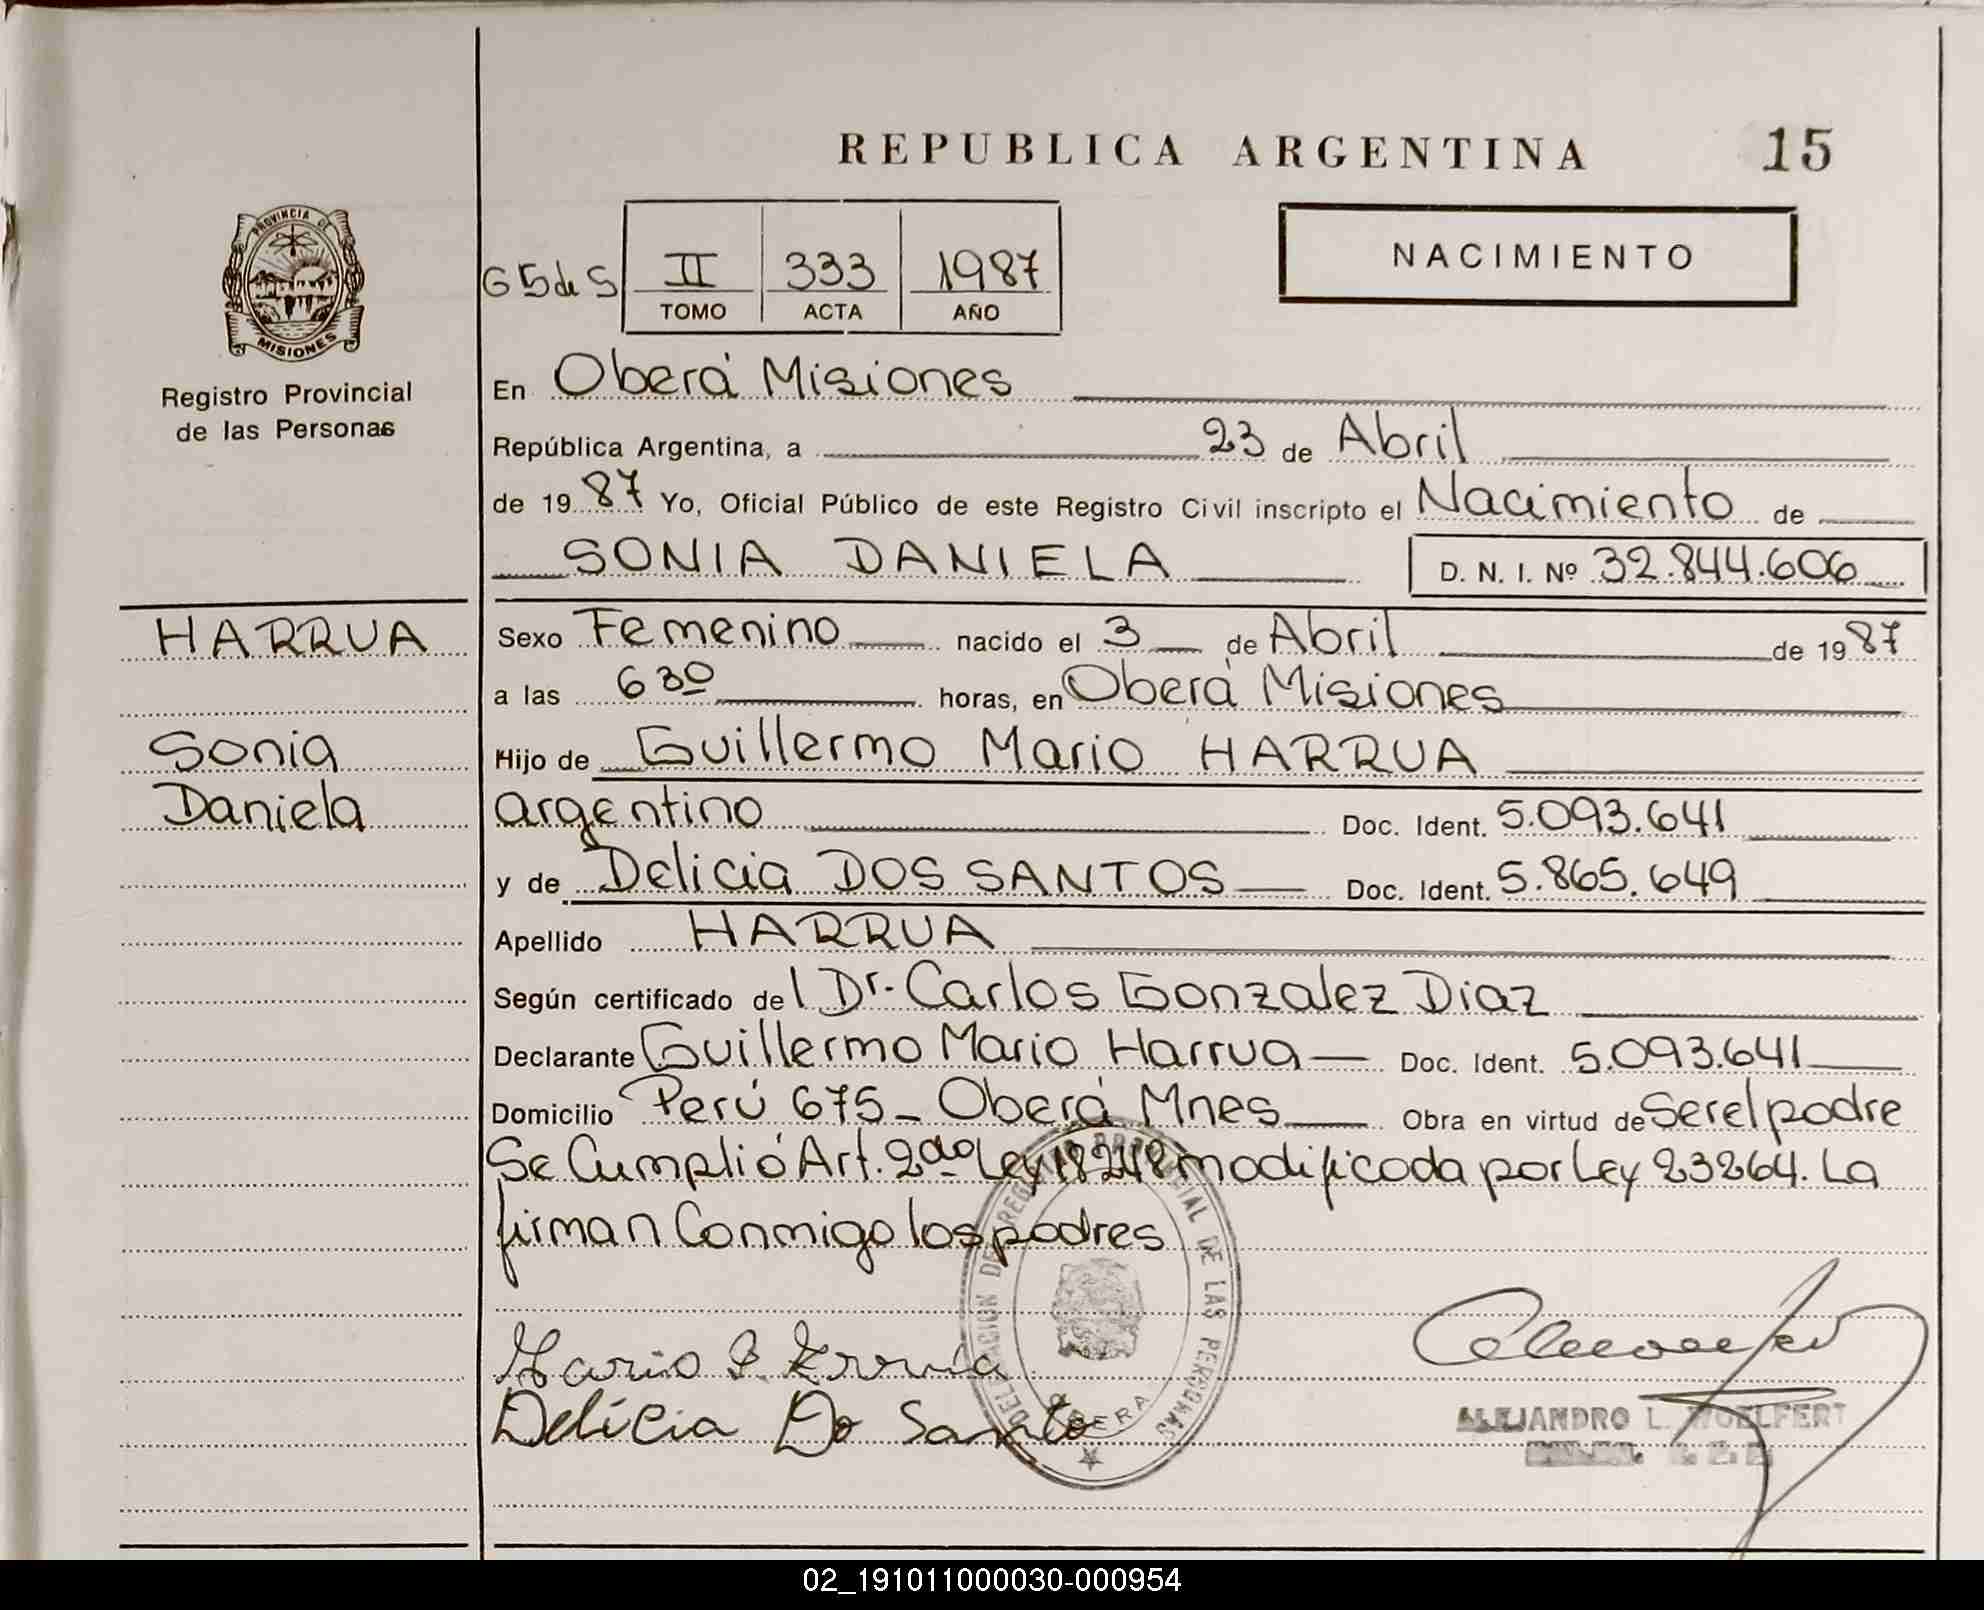 REPUBLICA ARGENTINA 15
PROVINCIA DE
MISIONES
Registro Provincial
de las Personas
G5deS II 333 1987
TOMO ACTA AÑO
NACIMIENTO
En Oberá Misiones
República Argentina, a 23 de Abril
de 1987 Yo, Oficial Público de este Registro Civil inscripto el Nacimiento de
SONIA DANIELA D. N. I. Nº 32.844.606
HARRUA
Sonia
Daniela
Sexo Femenino nacido el 3 de Abril de 1987
a las 6 30 horas, en Oberá Misiones
Hijo de Guillermo Mario HARRUA
argentino Doc. Ident. 5.093.641
y de Delicia DOS SANTOS Doc. Ident. 5.865.649
Apellido HARRUA
Según certificado del Dr. Carlos Gonzalez Diaz
Declarante Guillermo Mario Harrua Doc. Ident. 5.093.641
Domicilio Perú 675 - Oberá Mnes Obra en virtud de Ser el padre
Se Cumplió Art. 2do Ley 18248 modificada por Ley 23264. La
firman Conmigo los padres
Delicia Do Santo
DE LAS PERSONAS
ALEJANDRO L. WOELFERT
02_191011000030-000954